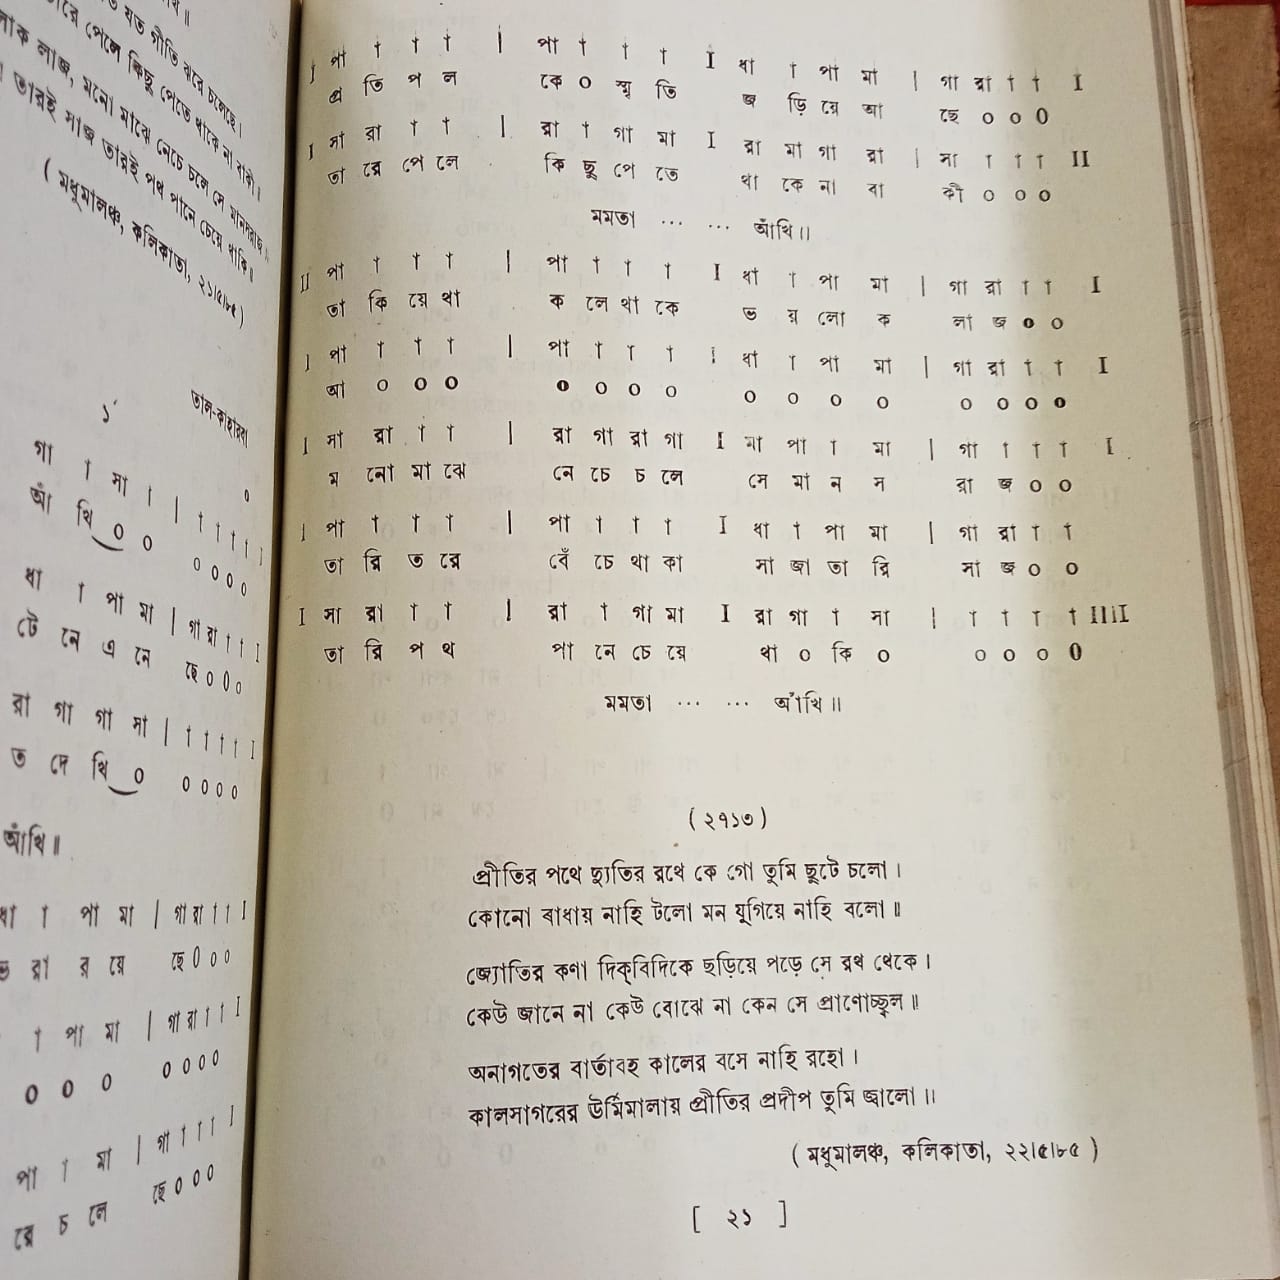 যত গীতি ঝরে চলেছে।
তারে পেলে কিছু পেতে থাকে না বাকী।
লোক লাজ, মনো মাঝে নেচে চলে সে মানসরাজ।
তারই সাজ তারই পথ পানে চেয়ে থাকি॥
(মধুমালঞ্চ, কলিকাতা, ২১।৫।৮৫)
তাল-কাহারবা
১´
০
গা † মা † | † † † † I
আঁ খি ০ ০ ০ ০ ০ ০
ধা † পা মা | গা রা † † I
টে নে এ নে ছে ০ ০ ০
রা গা গা মা | † † † † I
ত দে খি ০ ০ ০ ০ ০
আঁখি॥
ধা † পা মা | গা রা † † I
রা র য়ে ছে ০ ০ ০
† পা মা | গা রা † † I
০ ০ ০ ০ ০ ০ ০
পা † মা | গা † † † I
রে চ লে ছে ০ ০ ০
I পা † † † | পা † † † I ধা † পা মা | গা রা † † I
প্র তি প ল কে ০ স্মৃ তি জ ড়ি য়ে আ ছে ০ ০ ০
I মা রা † † | রা † গা মা I রা মা গা রা | সা † † † II
তা রে পে লে কি ছু পে তে থা কে না বা কী ০ ০ ০
মমতা ... ... আঁখি॥
II পা † † † | পা † † † I ধা † পা মা | গা রা † † I
তা কি য়ে থা ক লে থা কে ভ য় লো ক লা জ ০ ০
I পা † † † | পা † † † I ধা † পা মা | গা রা † † I
আ ০ ০ ০ ০ ০ ০ ০ ০ ০ ০ ০ ০ ০ ০ ০
I সা রা † † | রা গা রা গা I মা পা † মা | গা † † † I
ম নো মা ঝে নে চে চ লে সে মা ন স রা জ ০ ০
I পা † † † | পা † † † I ধা † পা মা | গা রা † †
তা রি ত রে বেঁ চে থা কা সা জা তা রি সা জ ০ ০
I সা রা † † | রা † গা মা I রা গা † সা | † † † † IIII
তা রি প থ পা নে চে য়ে থা ০ কি ০ ০ ০ ০ ০
মমতা ... ... আঁখি॥
(২৭১৩)
প্রীতির পথে দ্যুতির রথে কে গো তুমি ছুটে চলো।
কোনো বাধায় নাহি টলো মন যুগিয়ে নাহি বলো॥
জ্যোতির কণা দিক্‌বিদিকে ছড়িয়ে পড়ে সে রথ থেকে।
কেউ জানে না কেউ বোঝে না কেন সে প্রাণোচ্ছল॥
অনাগতের বার্তাবহ কালের বসে নাহি রহো।
কালসাগরের উর্মিমালায় প্রীতির প্রদীপ তুমি জ্বালো॥
(মধুমালঞ্চ, কলিকাতা, ২২।৫।৮৫)
[ ২১ ]